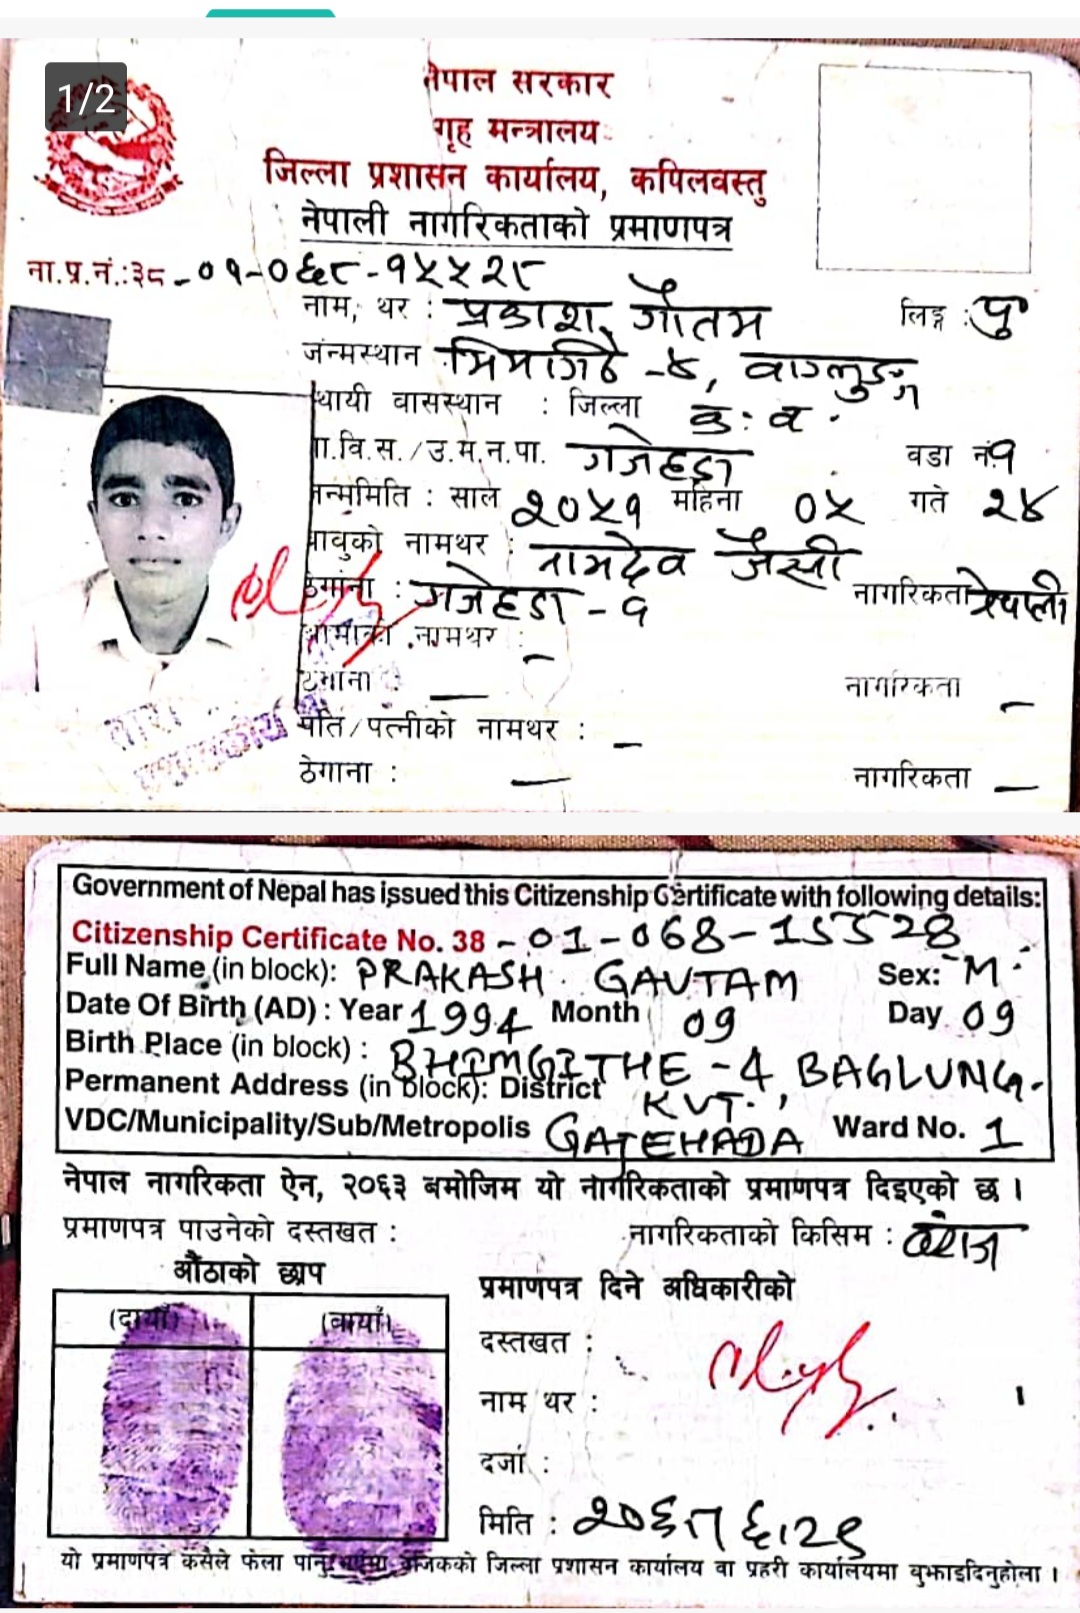 1/2
नेपाल सरकार
गृह मन्त्रालय
जिल्ला प्रशासन कार्यालय, कपिलवस्तु
नेपाली नागरिकताको प्रमाणपत्र
ना.प्र.नं.:३८-०१-०६८-१५५२८
नाम, थर : प्रकाश गौतम लिङ्ग : पु
जन्मस्थान भिमगिठे -४, वाग्लुङ्ग
थायी वासस्थान : जिल्ला क: व.
गा.वि.स./उ.म.न.पा. गजेहडा वडा नं. १
जन्ममिति : साल २०५१ महिना ०५ गते २४
बाबुको नामथर : नामदेव जैसी
ठेगाना : गजेहडा - १ नागरिकता नेपाली
आमाको नामथर : -
ठेगाना : - नागरिकता -
पति/पत्नीको नामथर : -
ठेगाना : - नागरिकता -
Government of Nepal has issued this Citizenship Certificate with following details:
Citizenship Certificate No. 38 - 01-068-15528
Full Name (in block): PRAKASH GAUTAM Sex: M.
Date Of Birth (AD) : Year 1994 Month 09 Day 09
Birth Place (in block) : BHIMGITHE -4 BAGLUNG.
Permanent Address (in block): District KVT.,
VDC/Municipality/Sub/Metropolis GAJEHADA Ward No. 1
नेपाल नागरिकता ऐन, २०६३ बमोजिम यो नागरिकताको प्रमाणपत्र दिइएको छ ।
प्रमाणपत्र पाउनेको दस्तखत : नागरिकताको किसिम : वंशज
औंठाको छाप
(दायाँ) (बायाँ)
प्रमाणपत्र दिने अधिकारीको
दस्तखत :
नाम थर :
दर्जा :
मिति : २०६८ ६।२९
यो प्रमाणपत्र कसैले फेला पारेमा नजिकको जिल्ला प्रशासन कार्यालय वा प्रहरी कार्यालयमा बुझाइदिनुहोला ।